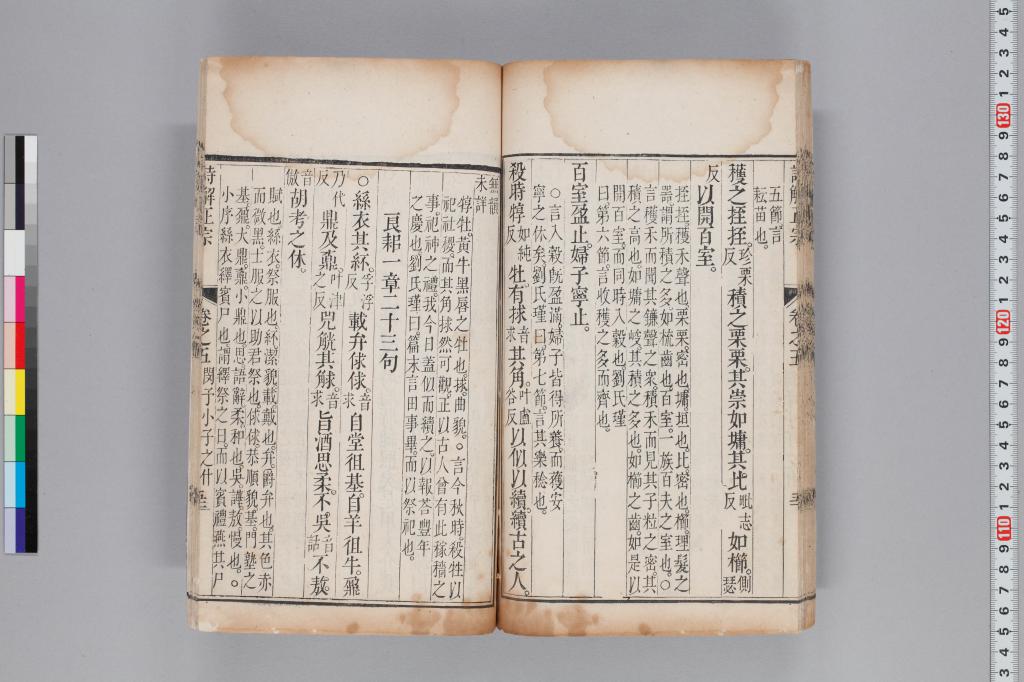 五節言
耘苗也。
穫之挃挃。珍栗反積之栗栗。其崇如墉。其比毗志反如櫛。側瑟
反以開百室。
挃挃穫禾聲也栗栗密也。墉垣也。比密也。櫛理髮之
器。謂所積之多如梳齒也。百室。一族百夫之室也。○
言穫禾而聞其鐮聲之衆。積禾而見其子粒之密。其
積之高也如墉之峻。其積之多也。如櫛之齒。如是以
開百室。而同時入穀也劉氏瑾
曰第六節。言收穫之多而齊也。
百室盈止。婦子寧止。
○言入穀旣盈滿。婦子皆得所養。而獲安
寧之休矣劉氏瑾曰第七節。言其樂稔也。
殺時犉如純反牡有捄音求其角叶盧谷反以似以續。續古之人。
無韻未詳
犉牡。黃牛黑脣之牡也。捄。曲貌。○言今秋時。殺牲以
祀社稷。而其角捄然可觀。正以古人曾有此稼穡之
事。祀神之禮。我今日蓋似而續之。以報荅豐年
之慶也劉氏瑾曰。篇末言田事畢。而以祭祀也。
良耜一章二十三句
○絲衣其紑孚浮反載弁俅俅音求自堂徂基。自羊徂牛。鼐
乃代反鼎及鼒叶津之反兕觥其觩音求旨酒思柔。不吳音話不敖。
音傲胡考之休。
賦也絲衣。祭服也。紑潔貌載戴也。弁。爵弁也。其色赤
而微黑。士服之以助君祭也。俅俅。恭順貌基。門塾之
基鼐。大鼎鼒。小鼎也思語辭柔。和也。吳。譁敖。慢也。○
小序絲衣繹賓尸也謂繹祭之日。而以賓禮燕其尸
詩解正宗
卷之五
閔子小子之什
卷之五